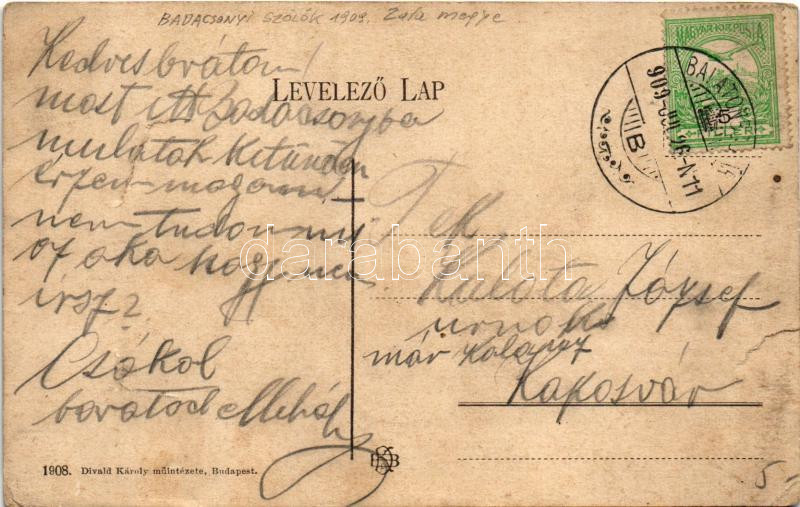 BADACSONYI SZŐLŐK 1909. Zala megye
LEVELEZŐ LAP
MAGYAR KIR. POSTA
BALATON
909
B
Kedves brátom!
most itt Badacsonyba
mulatok kitünően
érzem magam,
nem tudom mi
az oka hogy nem
írsz?
Csókol
barátod Mihály
Tek.
Kalóta József
urnak
máv
Kaposvár
1908. Divald Károly műintézete, Budapest.
5-
darabanth